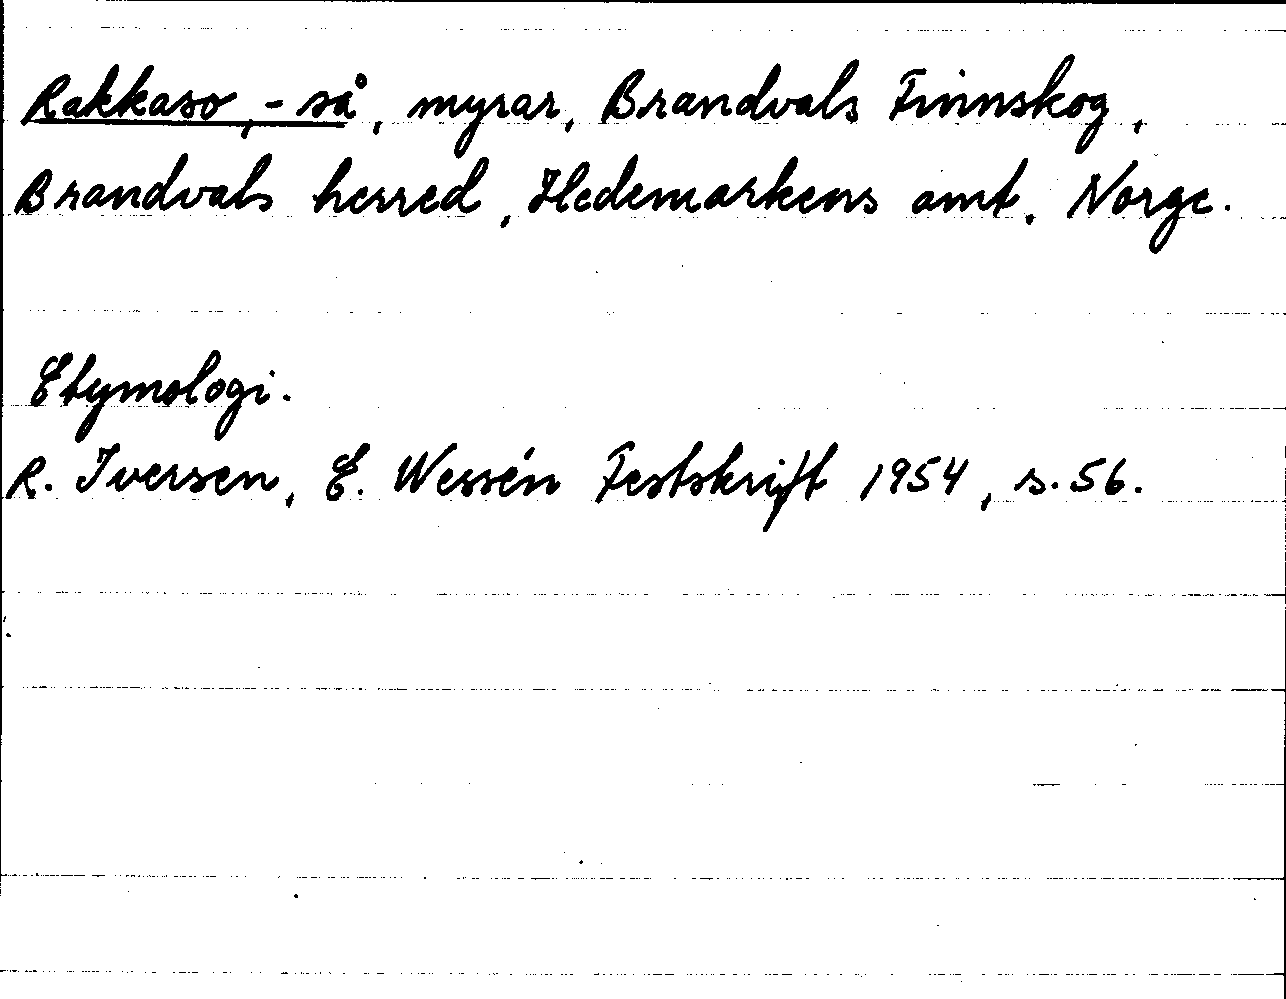 Rakkaso, -så, myrar, Brandvals Finnskog,
Brandvals herred, Hedemarkens amt, Norge.
Etymologi.
R. Iversen, E. Wessén Festskrift 1954, s. 56.